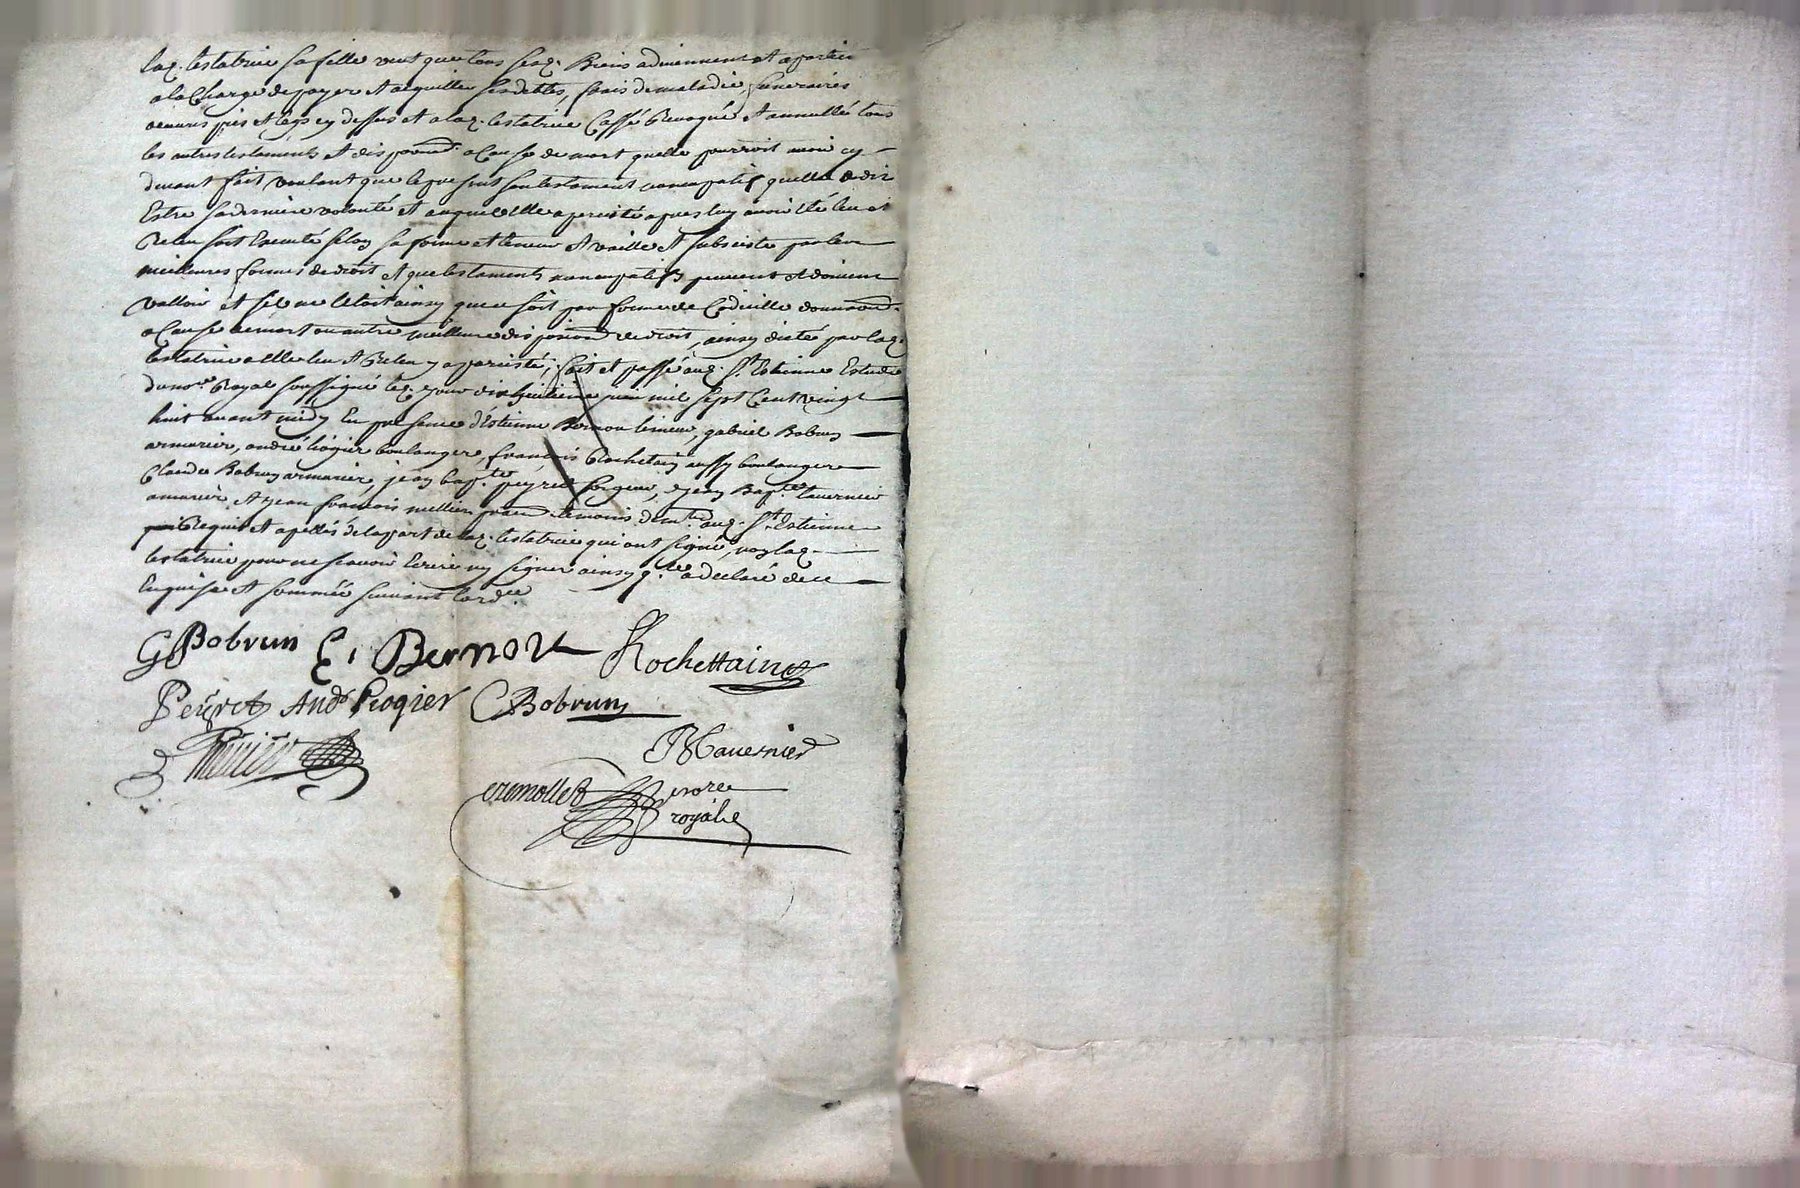 laq. testatrice sa fille veut que tous sesq. Biens adviennent et apartien
a la Charge de payer et acquitter ses debtes, frais de maladie, funeraires
oeuvres pies et legs cy dessus et a laq. testatrice Cassé Revoqué et annullé tous
les autres testaments et dispõons a Cause de mort quelle pourroit avoir cy
devant fait voulant que le present son testament noncupatif quelle a dit
Estre sa derniere volonté et auquel elle a persisté apres luy avoir été leu et
Releu soit Executé selon sa forme et teneur et vaille et subsiste par les
meilleures formes de droit et que testaments noncupatifs peuvent et doivent
valloir et sil ne letoit ainsy que ce soit par forme de Codicille donnaõn
a Cause de mort ou autre meilleure disposiõn de droit, ainsy dicté par laq.
testatrice a Elle leu et Releu y a persisté, fait et passé auq. St. Estienne Estude
du nore Royal soussigné leq. jour dix huitieme juin mil sept Cent vingt
huit avant midy En presence d'Estienne Bernou limeur, gabriel Bobrun
armurier, andré Rogier boulanger, françois Rochetain aussy boulanger
Claude Bobrun armurier, jean bapte. peyret forgeur, jean Bapte tavernier
armurier, et jean françois mellier pratn temoins demts. auq. St. Estienne
Requis et apellés de la part de laq. testatrice qui ont signé, non laq.
testatrice pour ne scavoir Ecrire ny signer ainsy qle a declaré de ce
Enquise et sommée suivant lordce.
G Bobrun E. Bernou Rochettain
Peyret And Rogier C Bobrun
JB Tavernier
cremollet nore
royal